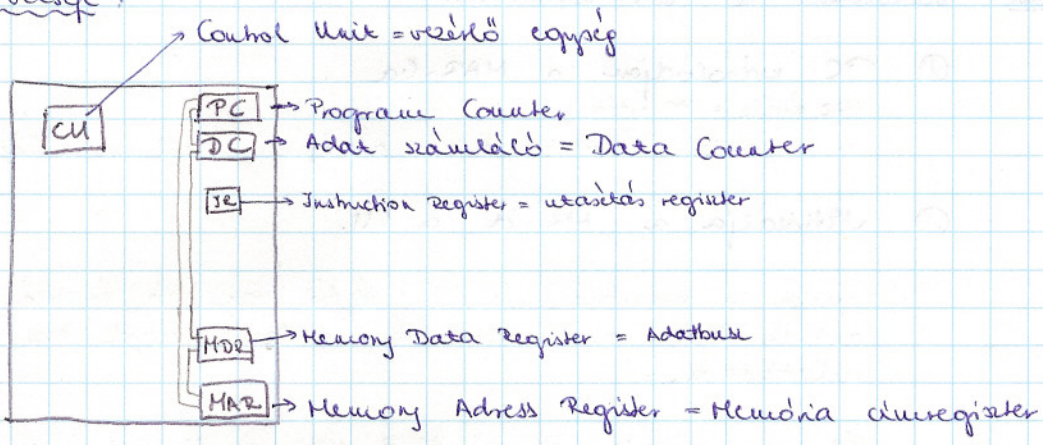 Control Unit = vezérlő egység
CU
PC → Program Counter
DC → Adat számláló = Data Counter
IR → Instruction Register = utasítás regiszter
MDR → Memory Data Register = Adatbusz
MAR → Memory Adress Register = Memória címregiszter